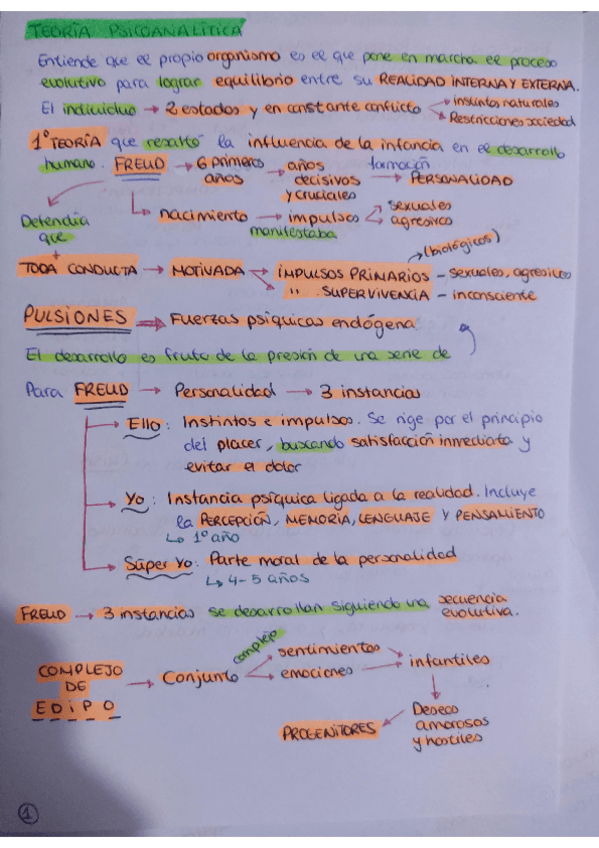 TEORÍA PSICOANALÍTICA
Entiende que el propio organismo es el que pone en marcha el proceso
evolutivo para lograr equilibrio entre su REALIDAD INTERNA Y EXTERNA.
El individuo → 2 estados y en constante conflicto
Instintos naturales
Restricciones sociedad
1º TEORÍA que resaltó la influencia de la infancia en el desarrollo
humano. FREUD → 6 primeros años → años decisivos y cruciales → formación PERSONALIDAD
nacimiento → impulsos manifestaba
sexuales
agresivos
Defendía que
(biológicos)
TODA CONDUCTA → MOTIVADA → IMPULSOS PRIMARIOS - sexuales, agresivos
" SUPERVIVENCIA - inconsciente
PULSIONES ⇒ Fuerzas psíquicas endógena
El desarrollo es fruto de la presión de una serie de
Para FREUD → Personalidad → 3 instancias
→ Ello: Instintos e impulsos. Se rige por el principio
del placer, buscando satisfacción inmediata y
evitar el dolor
→ Yo: Instancia psíquica ligada a la realidad. Incluye
la PERCEPCIÓN, MEMORIA, LENGUAJE Y PENSAMIENTO
↳ 1º año
→ Súper Yo: Parte moral de la personalidad
↳ 4-5 años
FREUD → 3 instancias se desarrollan siguiendo una secuencia
evolutiva.
COMPLEJO DE EDIPO → Conjunto complejo
sentimientos
emociones
infantiles
Deseos
amorosos
y hostiles
PROGENITORES
1